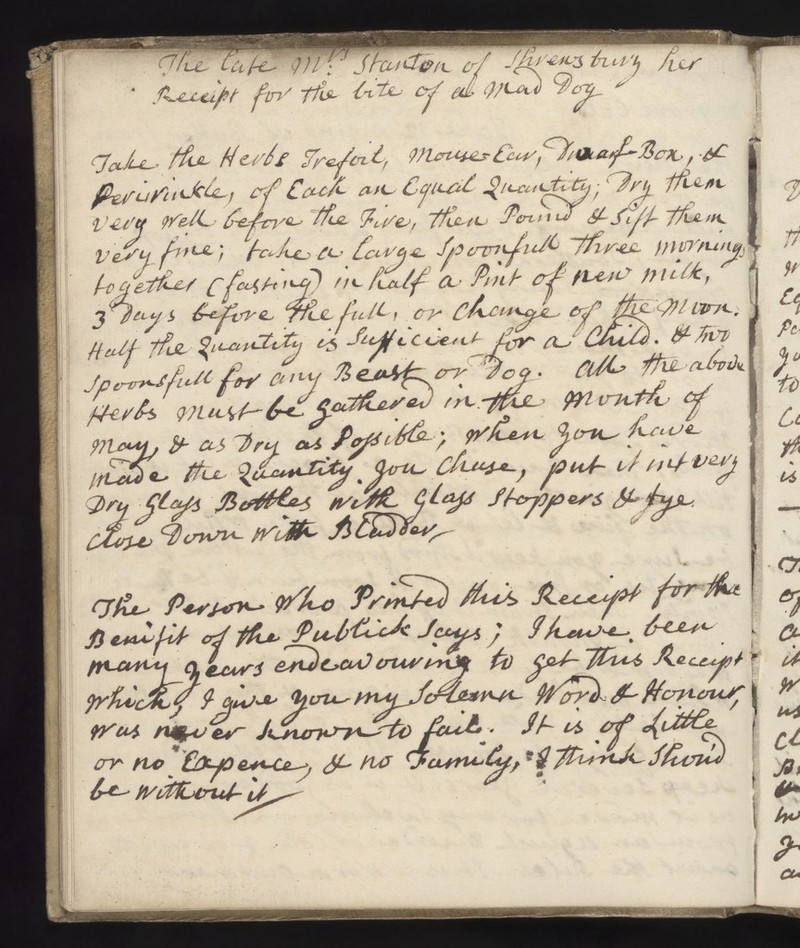 The late Mrs Stanton of Shrewsbury her
Receipt for the bite of a Mad Dog
Take the Herbs Trefoil, Mouse-Ear, Dwarf-Box, &
Periwinkle, of Each an Equal Quantity; Dry them
very well before the Fire, then Pound & Sift them
very fine; take a large Spoonfull three mornings
together (fasting) in half a Pint of new milk,
3 Days before the full, or Change of the Moon.
Half the Quantity is Sufficient for a Child. & two
Spoonsfull for any Beast or Dog. All the above
Herbs must be gathered in the Month of
May, & as Dry as Possible; when you have
made the Quantity you Chuse, put it int very
Dry Glass Bottles with Glass Stoppers & tye
Close Down with Bladder
The Person Who Printed this Receipt for the
Benifit of the Publick Says; I have been
many years endeavouring to get this Receipt
which, I give you my Solemn Word & Honour,
was never known to fail. It is of Little
or no Expence, & no Family, I think Shou'd
be without it
Eq
to
is
of
it
us